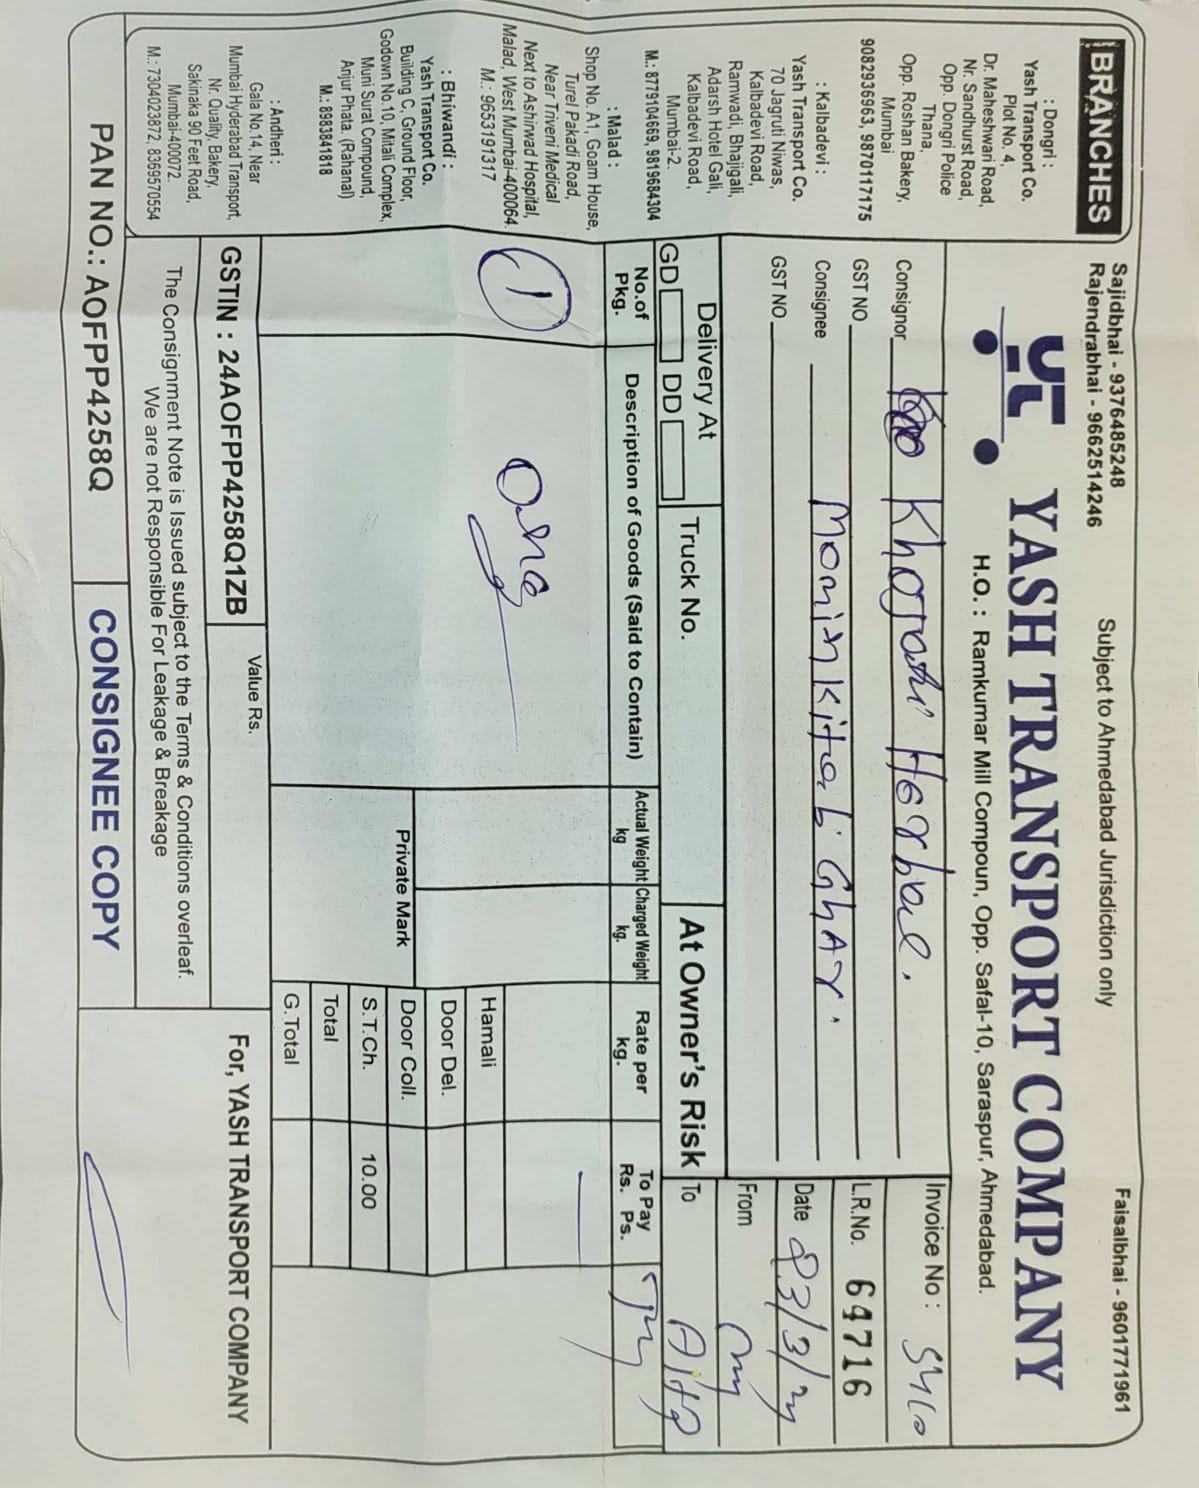 Sajidbhai - 9376485248
Rajendrabhai - 9662514246
Subject to Ahmedabad Jurisdiction only
Faisalbhai - 9601771961
YASH TRANSPORT COMPANY
H.O. : Ramkumar Mill Compoun, Opp. Safal-10, Saraspur, Ahmedabad.
BRANCHES
: Dongri :
Yash Transport Co.
Plot No. 4,
Dr. Maheshwari Road,
Nr. Sandhurst Road,
Opp. Dongri Police
Thana,
Opp. Roshan Bakery,
Mumbai
9082936963, 9870117175
: Kalbadevi :
Yash Transport Co.
70 Jagruti Niwas,
Kalbadevi Road,
Ramwadi, Bhajigali,
Adarsh Hotel Gali,
Kalbadevi Road,
Mumbai-2.
M.: 8779104669, 9819684304
: Malad :
Shop No. A1, Goam House,
Turel Pakadi Road,
Near Triveni Medical
Next to Ashirwad Hospital,
Malad, West Mumbai-400064.
M.: 9653191317
: Bhiwandi :
Yash Transport Co.
Building C, Ground Floor,
Godown No.10, Mitali Complex,
Muni Surat Compound,
Anjur Phata. (Rahanal)
M.: 8983841818
: Andheri :
Gala No.14, Near
Mumbai Hyderabad Transport,
Nr. Quality, Bakery,
Sakinaka 90 Feet Road,
Mumbai-400072.
M.: 7304023872, 8399570554
Consignor Khojati Herbal.
GST NO
Consignee Momin Kitab Ghar.
GST NO
Invoice No :
L.R.No. 64716
Date
From
To
Delivery At
GD DD
Truck No.
At Owner's Risk
No.of Pkg.
Description of Goods (Said to Contain)
Actual Weight kg
Charged Weight kg.
Rate per kg.
To Pay Rs. Ps.
1
Hamali
Door Del.
Door Coll.
S.T.Ch. 10.00
Total
G.Total
Private Mark
GSTIN : 24AOFPP4258Q1ZB
Value Rs.
The Consignment Note is Issued subject to the Terms & Conditions overleaf.
We are not Responsible For Leakage & Breakage
For, YASH TRANSPORT COMPANY
PAN NO.: AOFPP4258Q
CONSIGNEE COPY